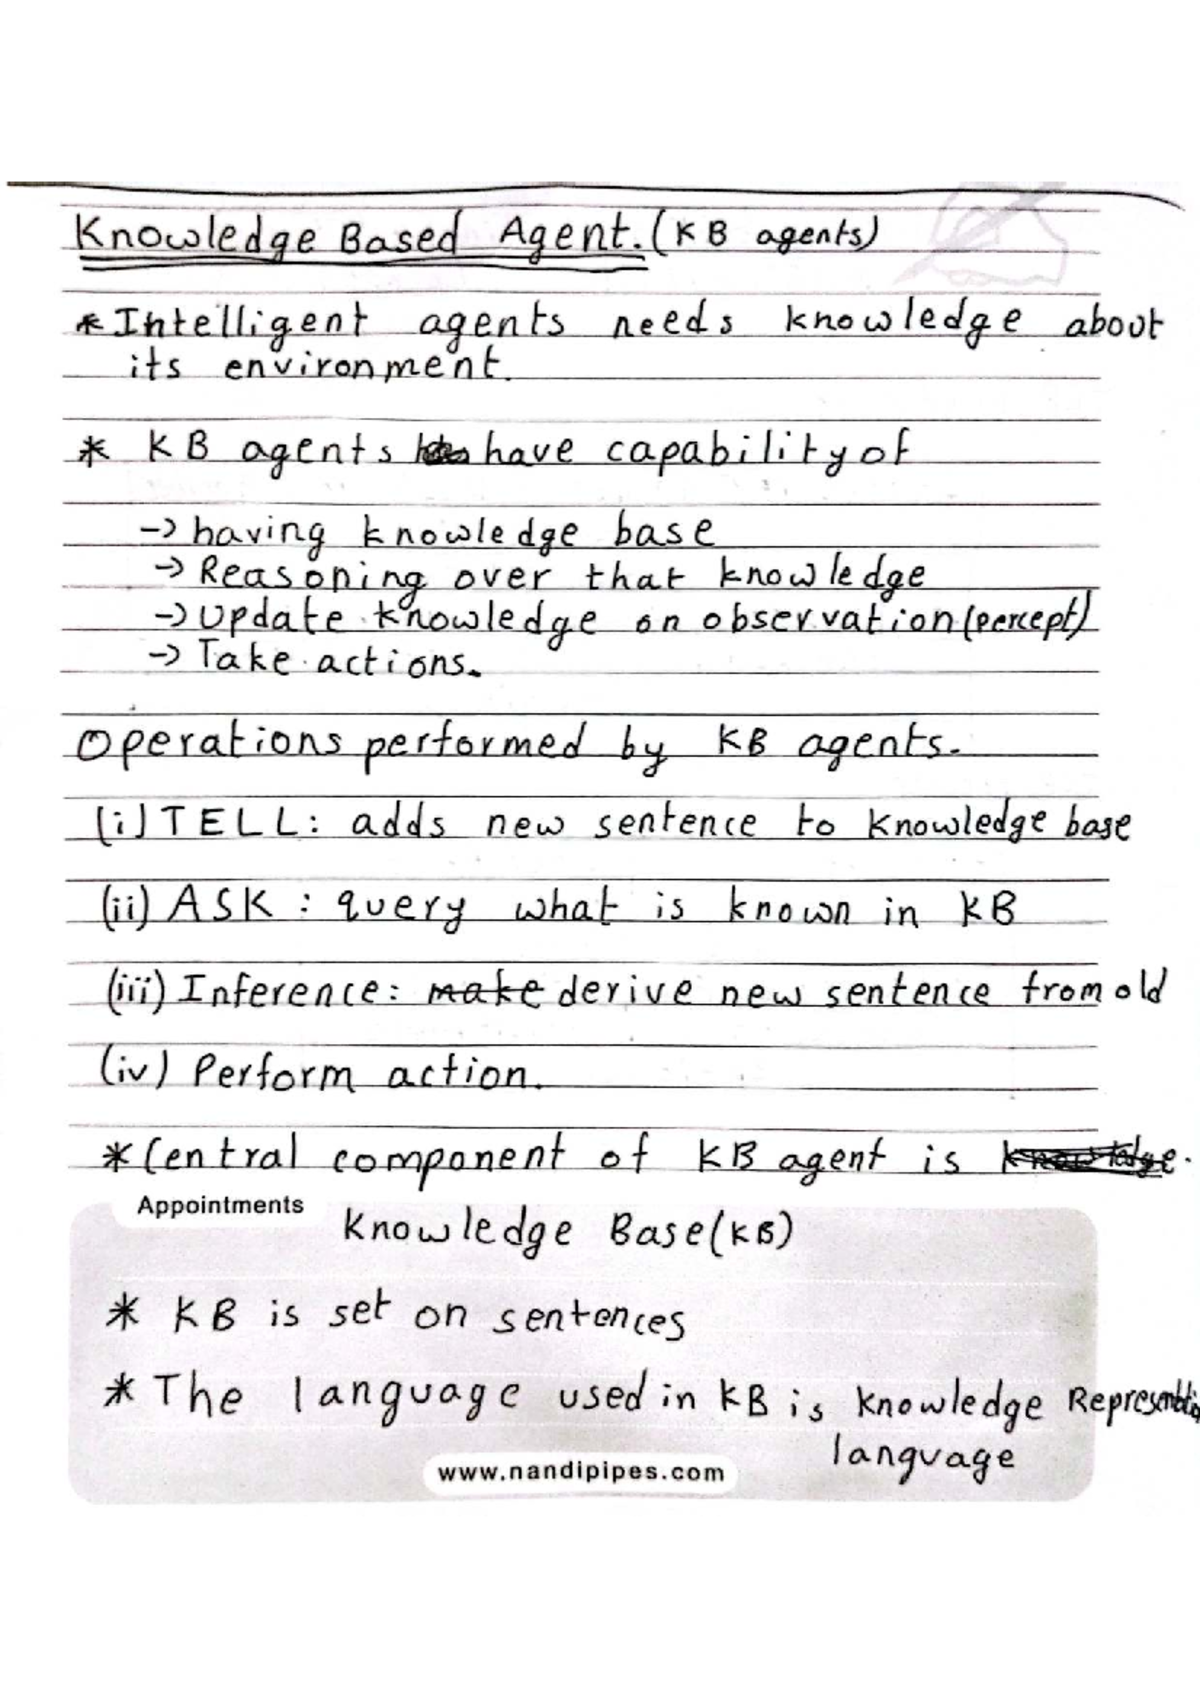 Knowledge Based Agent. (KB agents)
* Intelligent agents needs knowledge about
its environment.
* KB agents have capability of
-> having knowledge base
-> Reasoning over that knowledge
-> Update knowledge on observation (percept)
-> Take actions.
Operations performed by KB agents.
(i) TELL: adds new sentence to knowledge base
(ii) ASK : query what is known in KB
(iii) Inference: make derive new sentence from old
(iv) Perform action.
* Central component of KB agent is knowledge.
Appointments
Knowledge Base (KB)
* KB is set on sentences
* The language used in KB is knowledge Representation
language
www.nandipipes.com